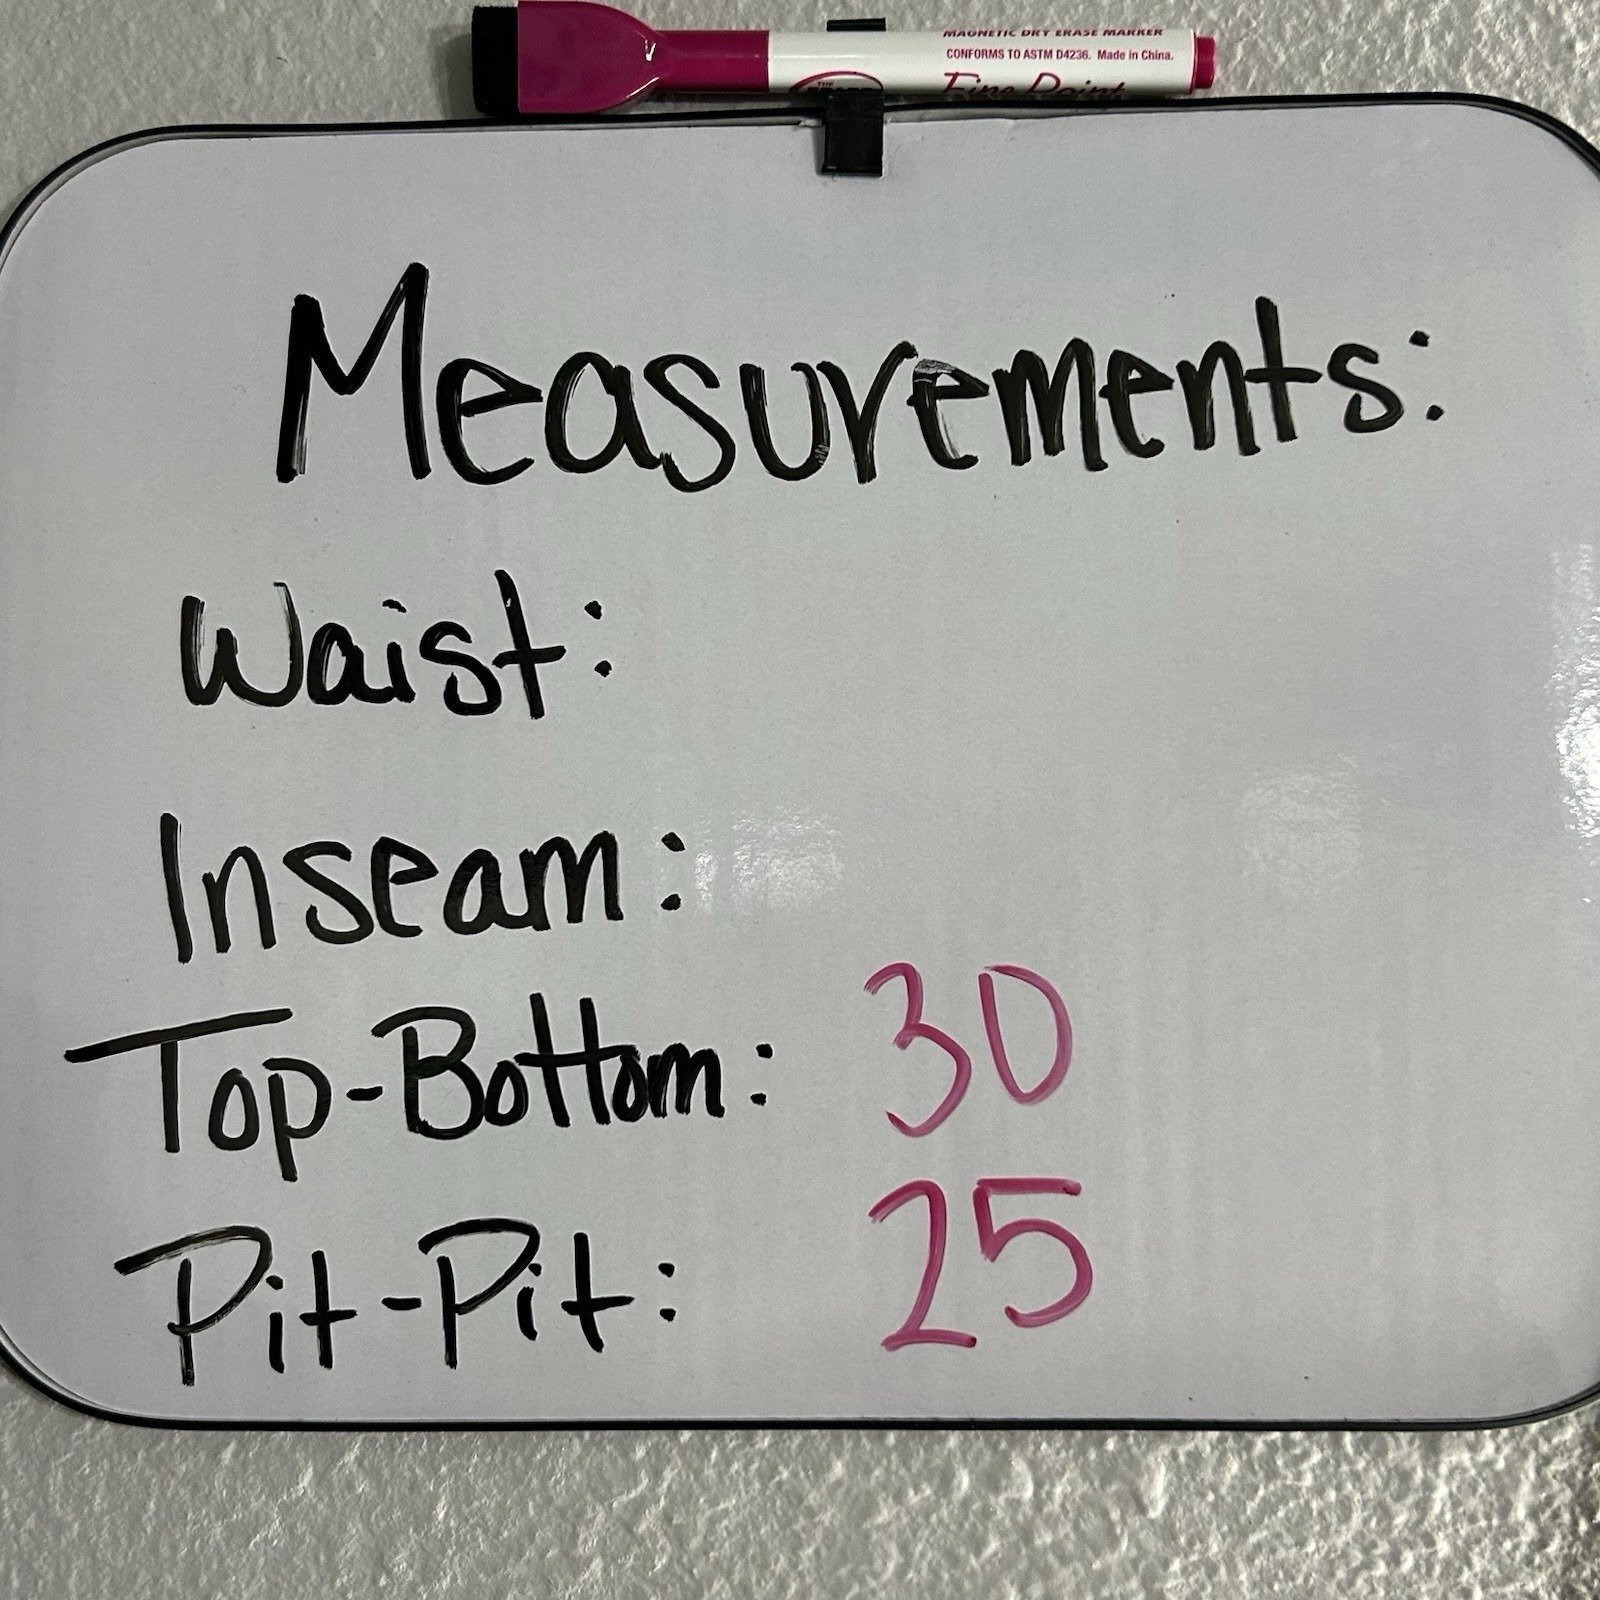 MAGNETIC DRY ERASE MARKER
CONFORMS TO ASTM D4236. Made in China.
THE
Fine Point
Measurements:
Waist:
Inseam:
Top-Bottom: 30
Pit-Pit: 25